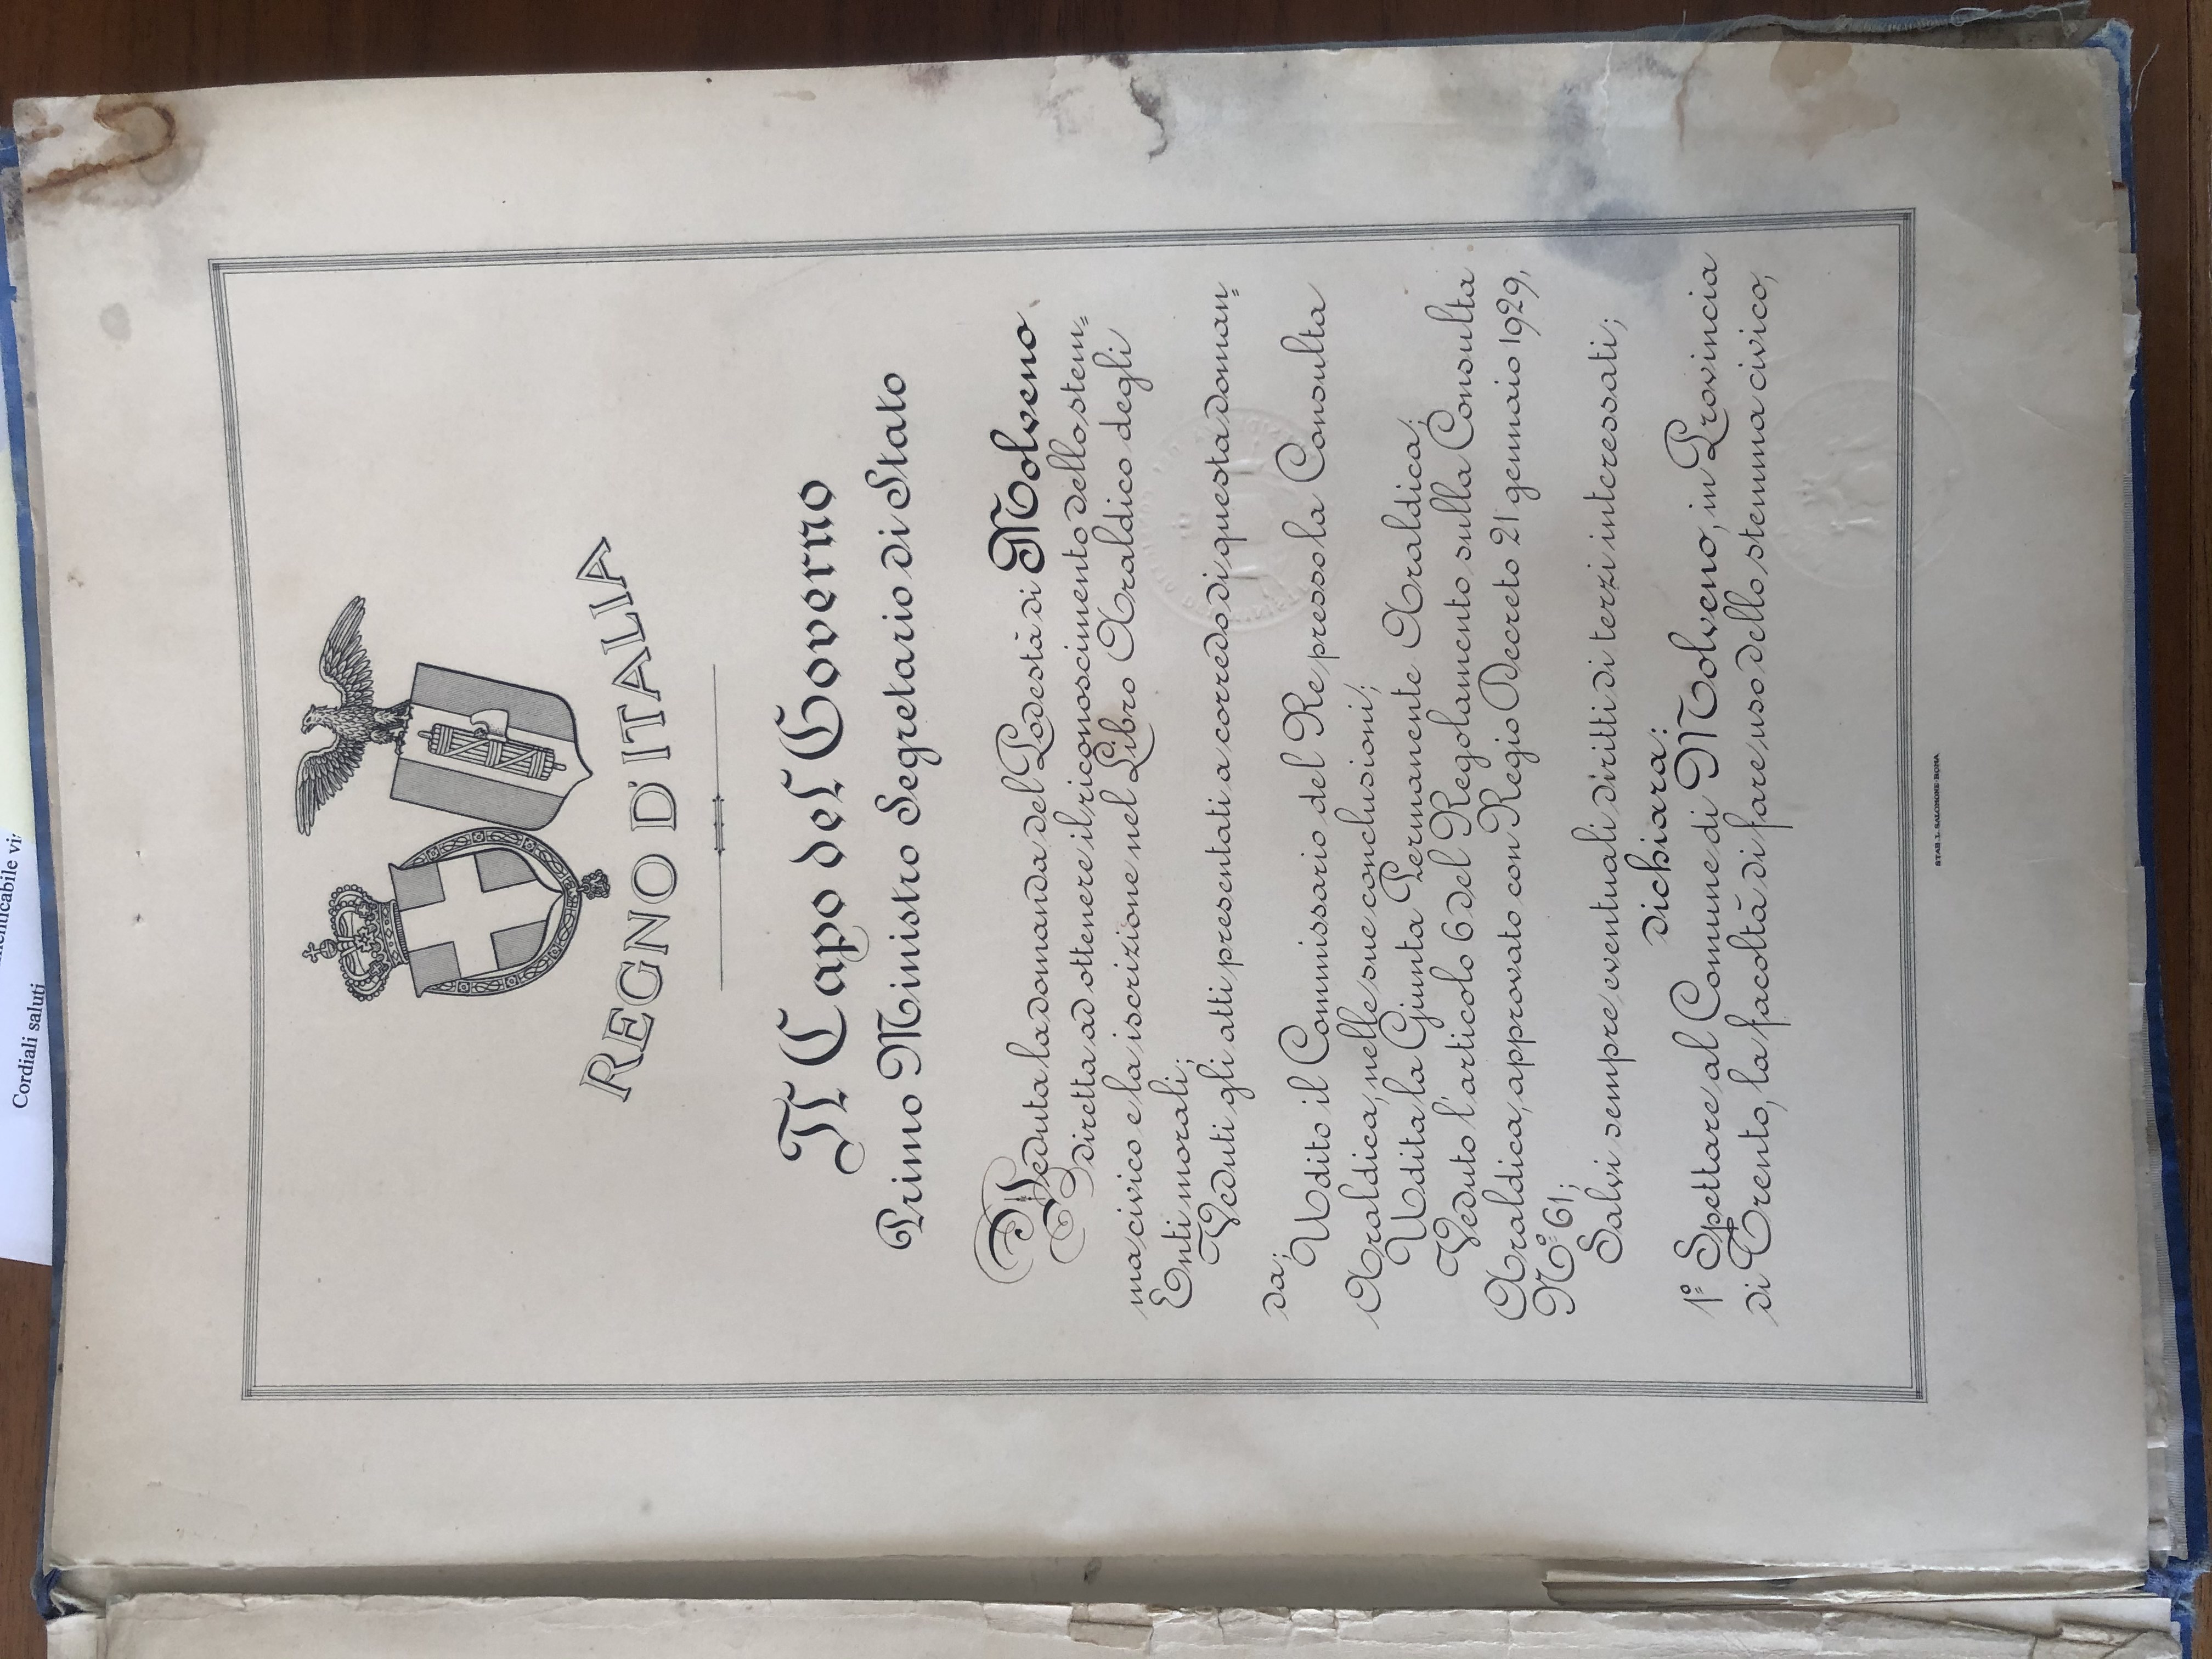 REGNO D'ITALIA
Il Capo del Governo
Primo Ministro Segretario di Stato
Veduta la domanda del Podestà di Molveno
diretta ad ottenere il riconoscimento dello stem=
ma civico e la iscrizione nel Libro Araldico degli
Enti morali;
Veduti gli atti presentati a corredo di questa doman=
da;
Udito il Commissario del Re presso la Consulta
Araldica, nelle sue conclusioni;
Udita la Giunta Permanente Araldica;
Veduto l'articolo 6 del Regolamento sulla Consulta
Araldica, approvato con Regio Decreto 21 gennaio 1929,
N.º 61;
Salvi sempre eventuali diritti di terzi interessati;
dichiara:
1º Spettare al Comune di Molveno, in Provincia
di Trento, la facoltà di fare uso dello stemma civico,
STAB. L. SALOMONE-ROMA
Cordiali saluti